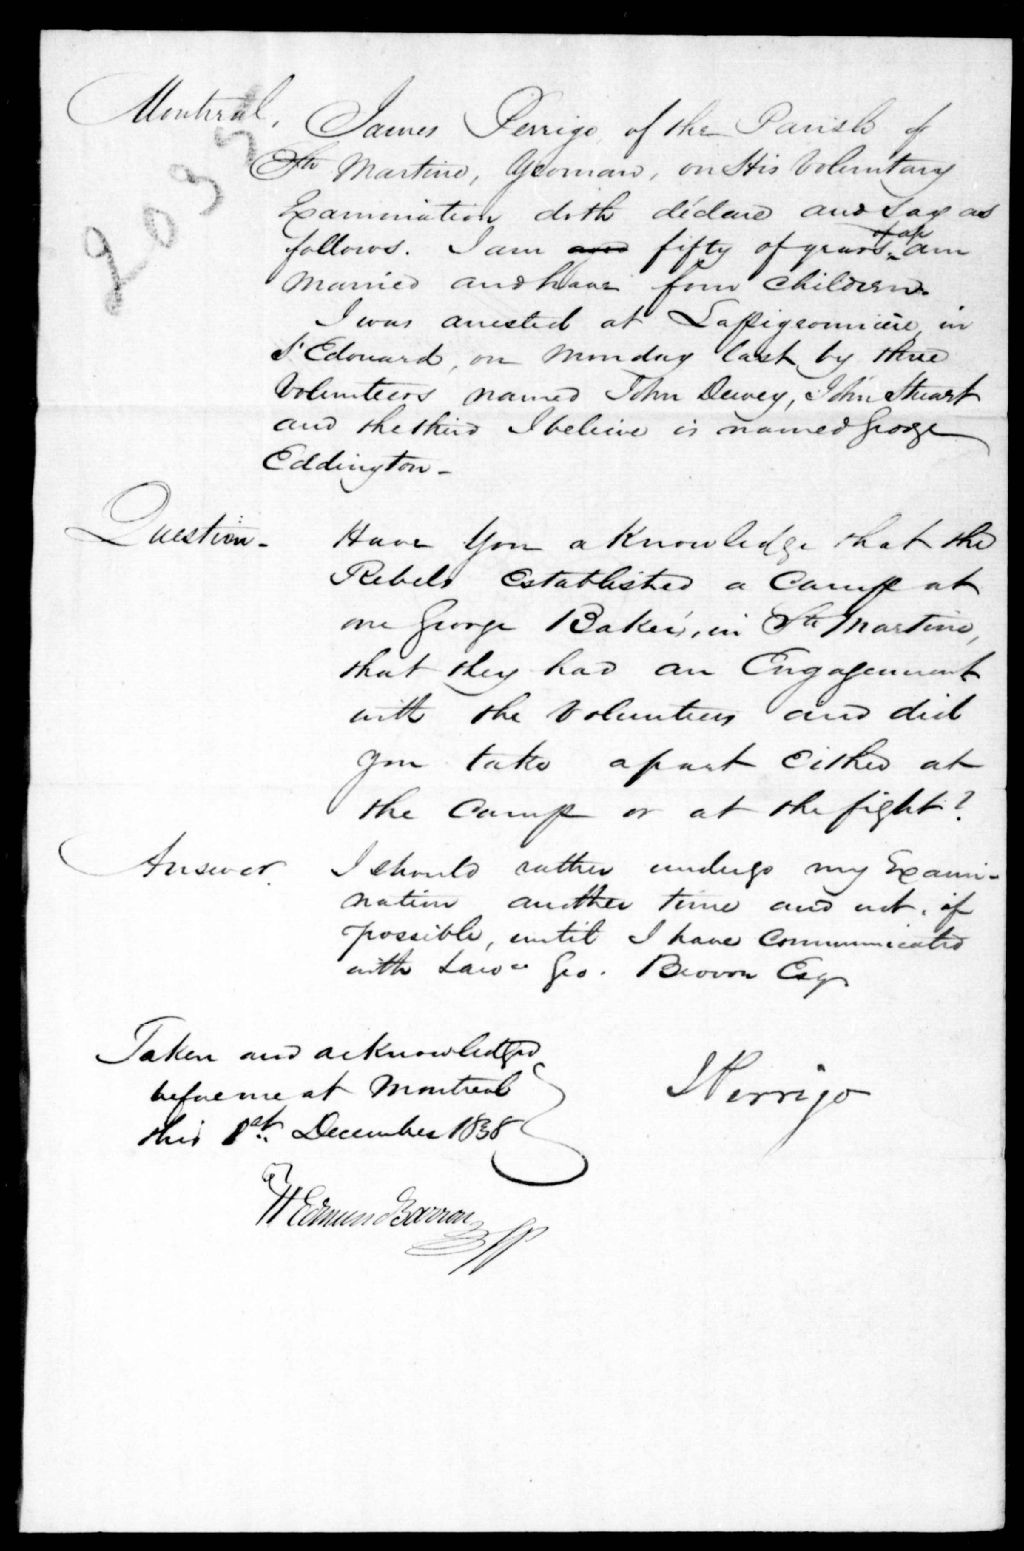 Montreal, James Perrigo, of the Parish of
Ste Martine, Yeoman, on His Voluntary
Examination doth déclare and Say as
follows. I am and fifty of years of age am
Married and have four Children.
I was arrested at Lapigeonnière, in
St Edouard, on Monday last by three
Volunteers named John Dewey, John Stuart
and the third I believe is named George
Eddington -
Question - Have You a Knowledge that the
Rebels established a Camp at
one George Baker's, in Ste Martine,
that they had an Engagement
with the Volunteers and did
You take a part Either at
the Camp or at the fight?
Answer. I should rather undergo my Exami-
nation another time and not, if
possible, until I have Communicated
with Lawce Geo. Brown Esqr
Taken and acknowledged
before me at Montreal
this 1st December 1838
J Perrigo
Edmund Barron
JP